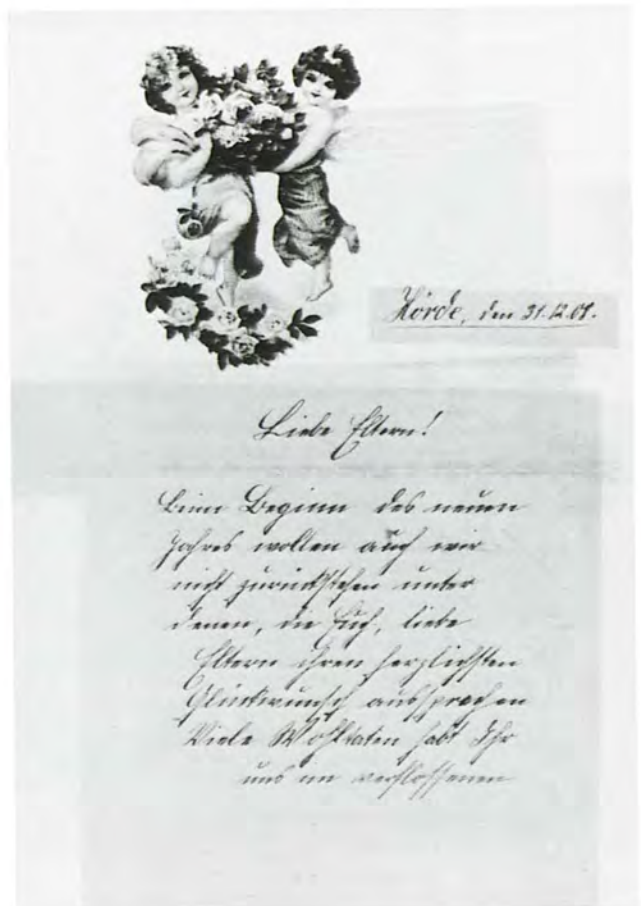 Hörde, den 31.12.01.
Liebe Eltern!
Beim Beginn des neuen
Jahres wollen auch wir
nicht zurückstehen unter
denen, die Euch, liebe
Eltern ihren herzlichsten
Glückwunsch aussprechen
Viele Wohltaten habt Ihr
uns im verflossenen